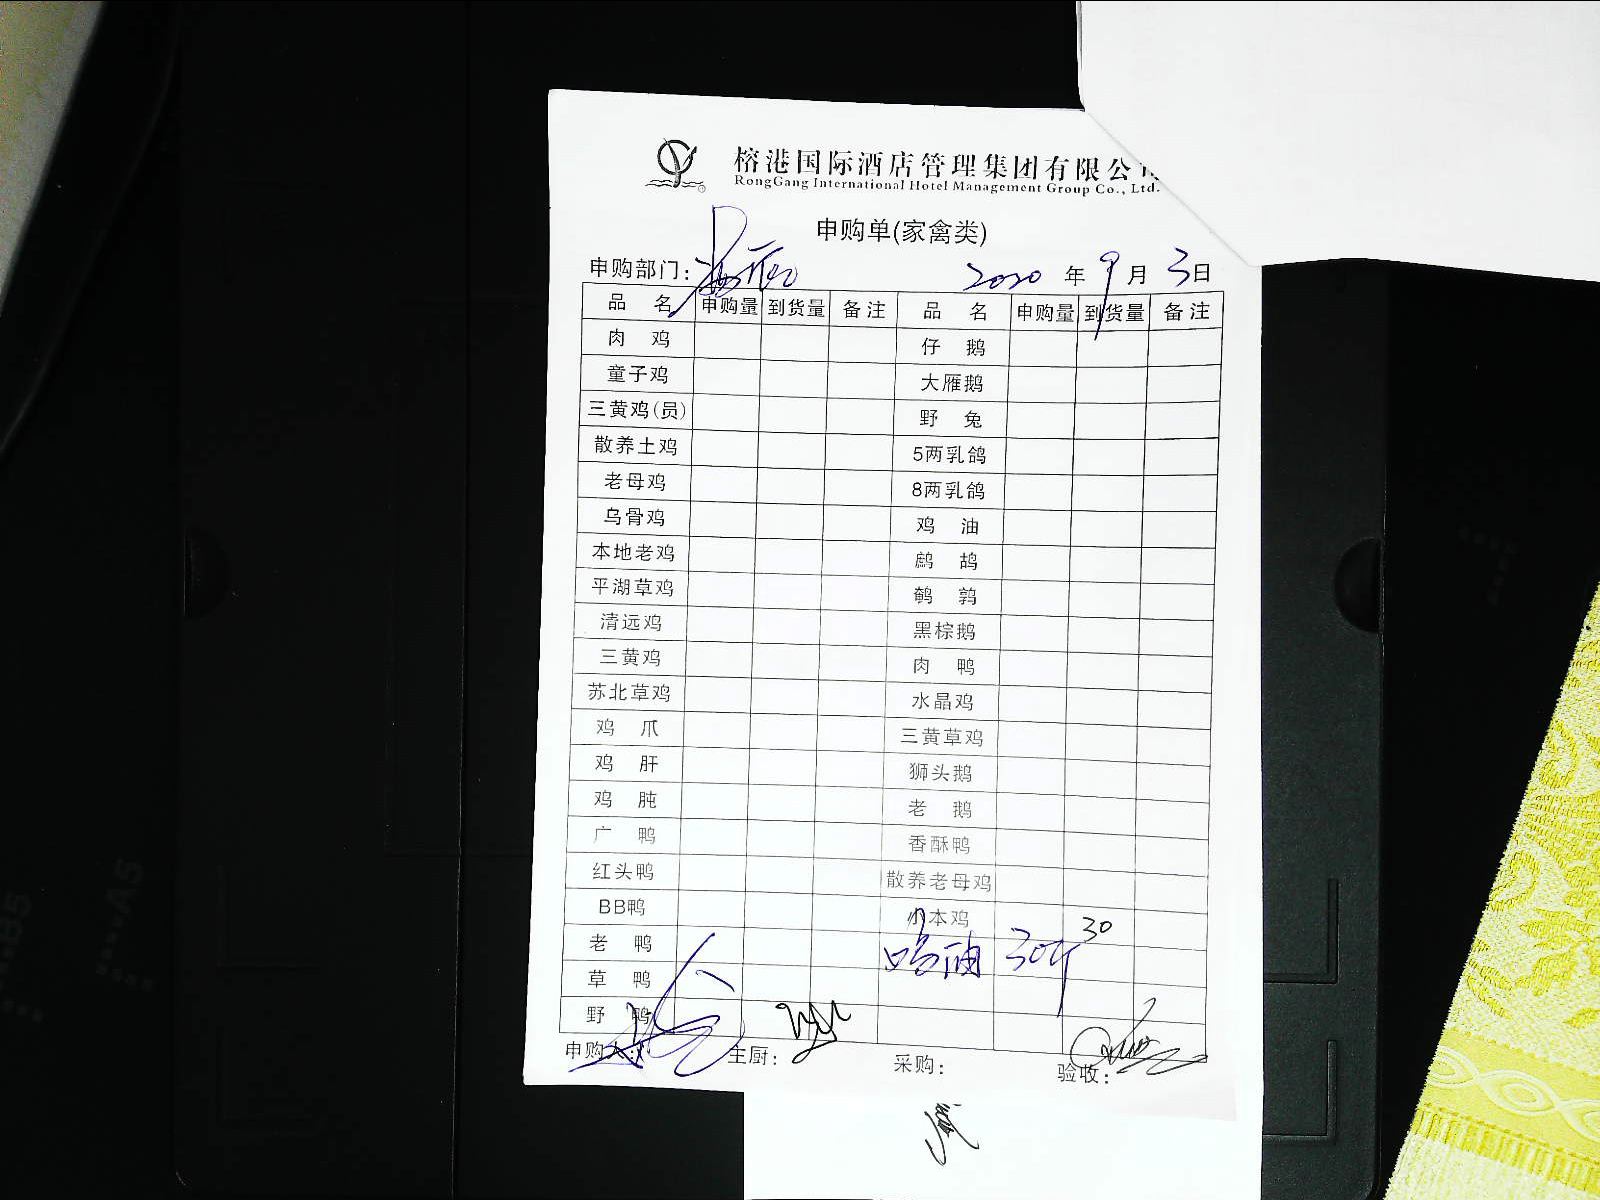 榕港国际酒店管理集团有限公
RongGang International Hotel Management Group Co., Ltd.
申购单(家禽类)
申购部门: 2020 年 9 月 3 日
品 名 申购量 到货量 备注 品 名 申购量 到货量 备注
肉 鸡 仔 鹅
童子鸡 大雁鹅
三黄鸡(员) 野 兔
散养土鸡 5两乳鸽
老母鸡 8两乳鸽
乌骨鸡 鸡 油
本地老鸡 鹧 鸪
平湖草鸡 鹌 鹑
清远鸡 黑棕鹅
三黄鸡 肉 鸭
苏北草鸡 水晶鸡
鸡 爪 三黄草鸡
鸡 肝 狮头鹅
鸡 肫 老 鹅
广 鸭 香酥鸭
红头鸭 散养老母鸡
BB鸭 小本鸡
老 鸭 鸡油 30斤 30
草 鸭
野 鸭
申购人: 主厨: 采购: 验收:
A5
B5